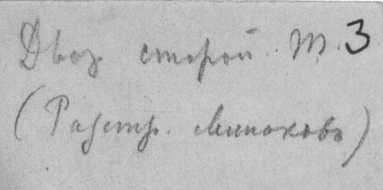 Двор старой т. 3
(Разстр. Мипоховъ)